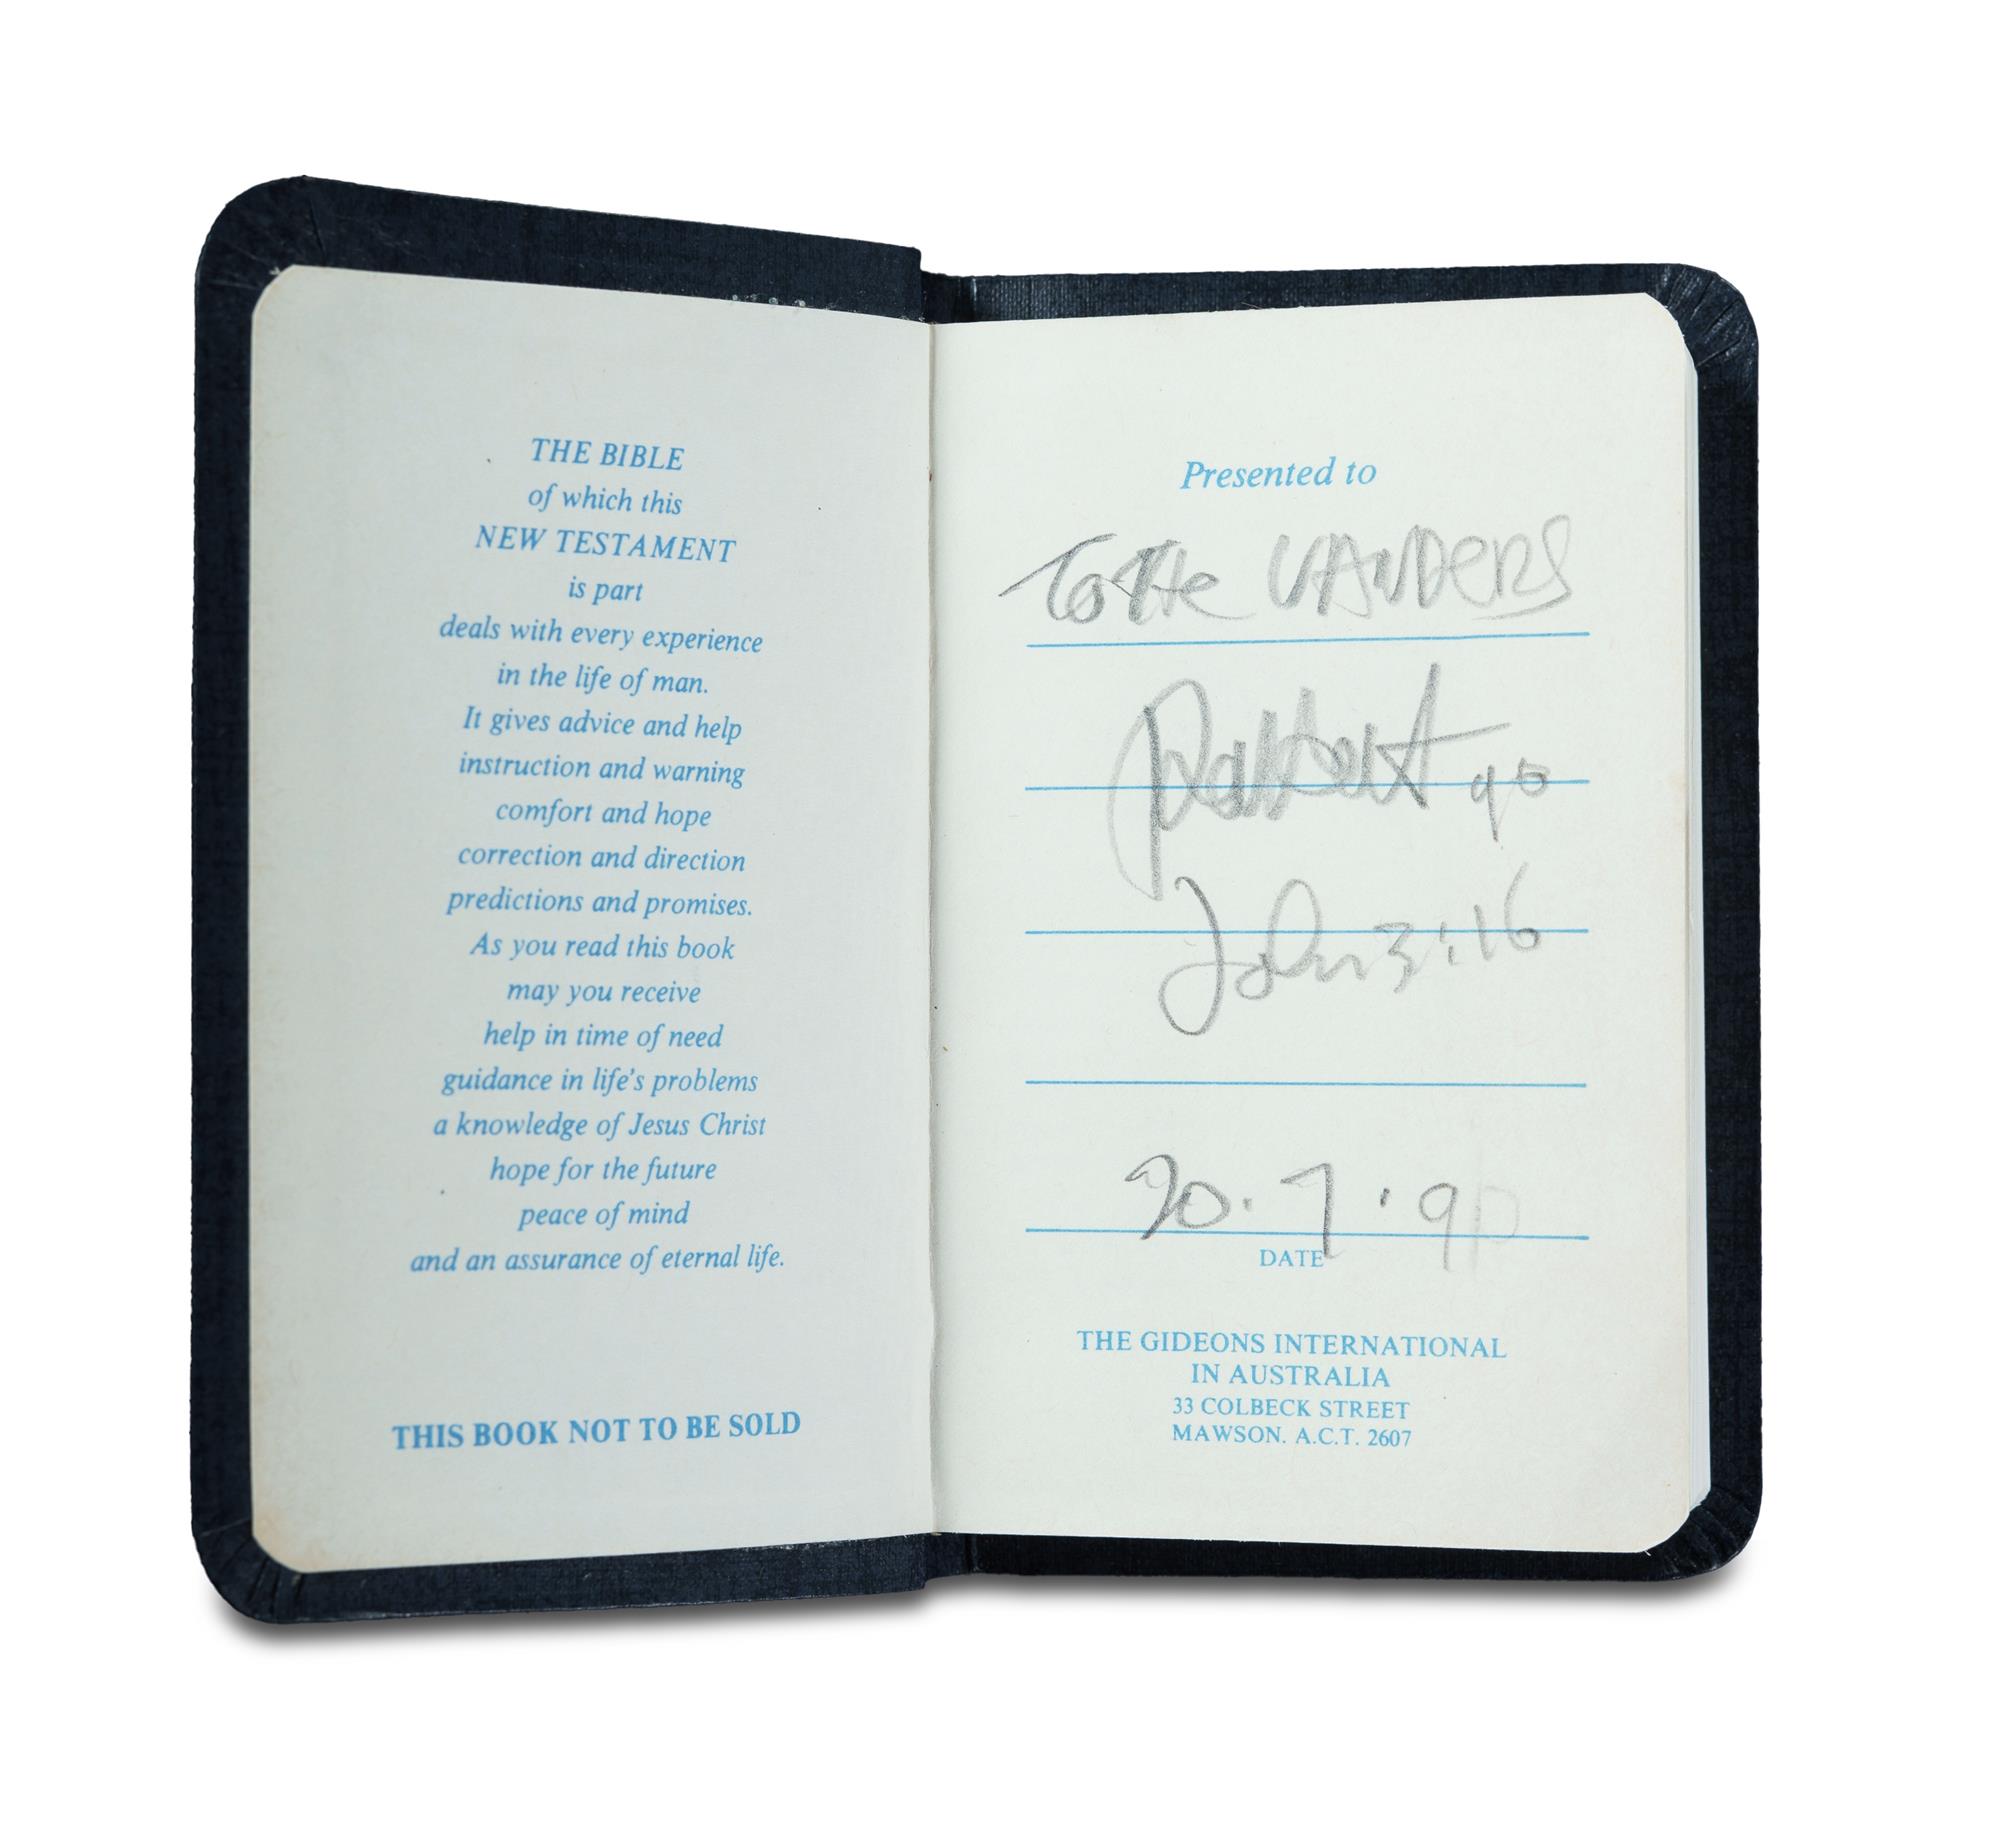 THE BIBLE
of which this
NEW TESTAMENT
is part
deals with every experience
in the life of man.
It gives advice and help
instruction and warning
comfort and hope
correction and direction
predictions and promises.
As you read this book
may you receive
help in time of need
guidance in life's problems
a knowledge of Jesus Christ
hope for the future
peace of mind
and an assurance of eternal life.
THIS BOOK NOT TO BE SOLD
Presented to
To THe VANDERS
90
John 3:16
DATE
THE GIDEONS INTERNATIONAL
IN AUSTRALIA
33 COLBECK STREET
MAWSON. A.C.T. 2607